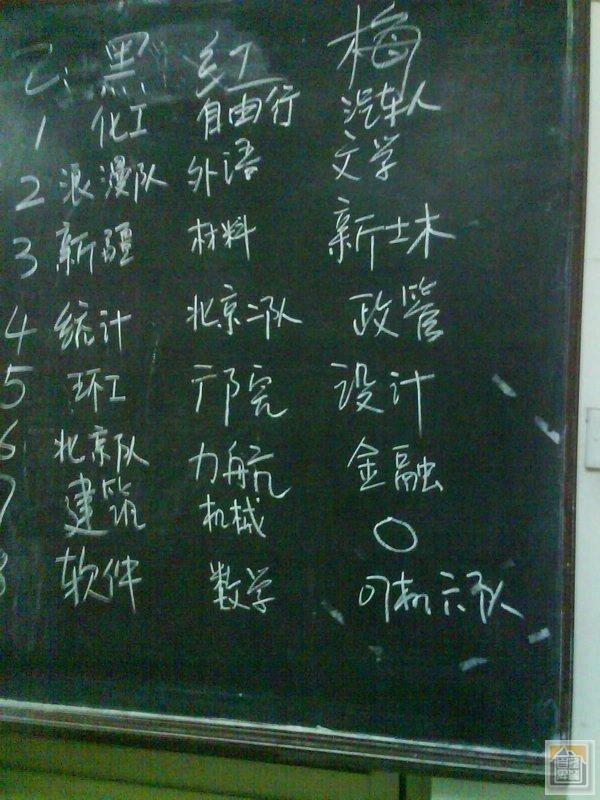 乙: 黑 红 梅
1 化工 自由行 汽车人
2 浪漫队 外语 文学
3 新疆 材料 新土木
4 统计 北京二队 政管
5 环工 邝宪 设计
6 北京队 力航 金融
7 建筑 机械 〇
8 软件 数学 司机六队